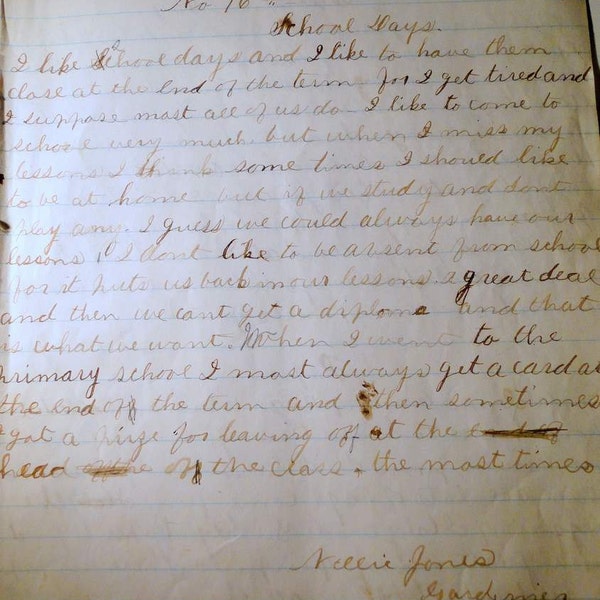 No 16
School Days.
I like School days and I like to have them
close at the end of the term for I get tired and
I suppose most all of us do I like to come to
schooe very much but when I miss my
lessons I thank some times I should like
to be at home but if we study and dont
play any. I guess we could always have our
lessons, I dont like to be absent from school
for it puts us back in our lessons a great deal
and then we cant get a diploma and that
is what we want. When I went to the
primary school I most always get a card at
the end of the term and then sometimes
got a prize for leaving off at the end of
head of the class. the most times
Nellie Jones
Gardiner